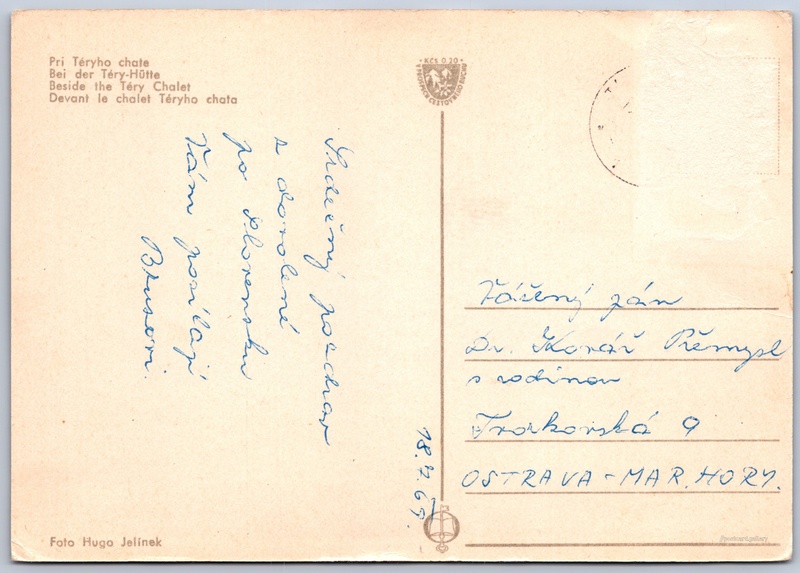 Pri Téryho chate
Bei der Téry-Hütte
Beside the Téry Chalet
Devant le chalet Téryho chata
Kčs 0.20
Srdečný pozdrav
z dovolené
po Slovensku
Vám posílají
18.7.65.
Vážený pán
Dr. Kovář Přemysl
s rodinou
9
OSTRAVA-MAR.HORY.
Foto Hugo Jelínek